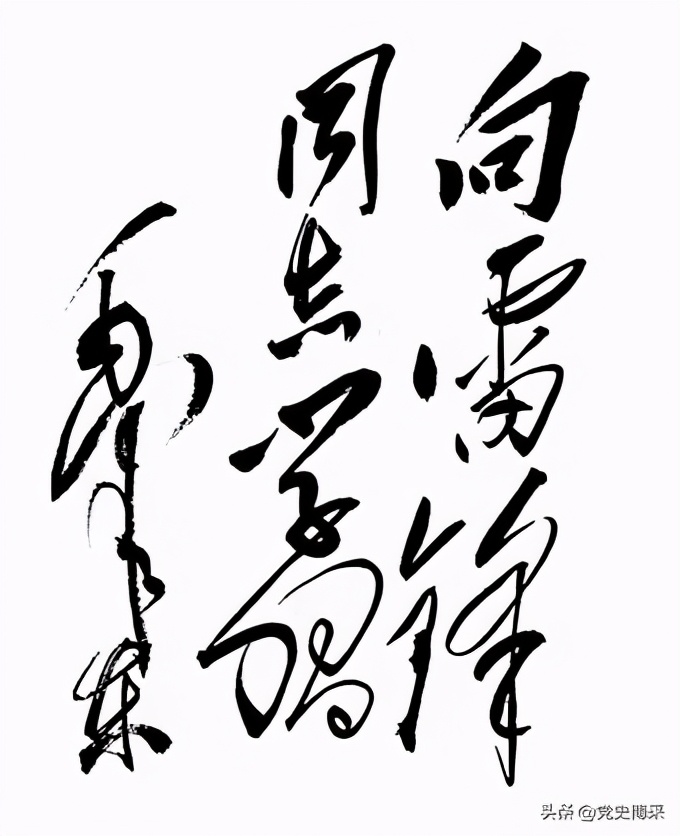 向雷锋
同志学习
毛泽东
头条 @党史博采